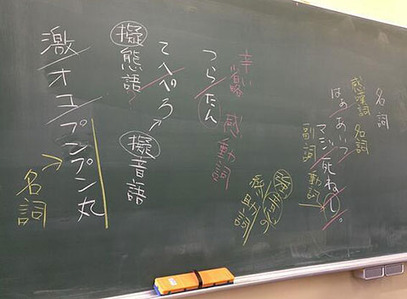 名詞
感嘆詞 名詞
はぁ あいつ
マジ 死ねし。
副詞 動詞
感動詞
つらたん
てへぺろ
擬態語 擬音語
激オコプンプン丸
名詞